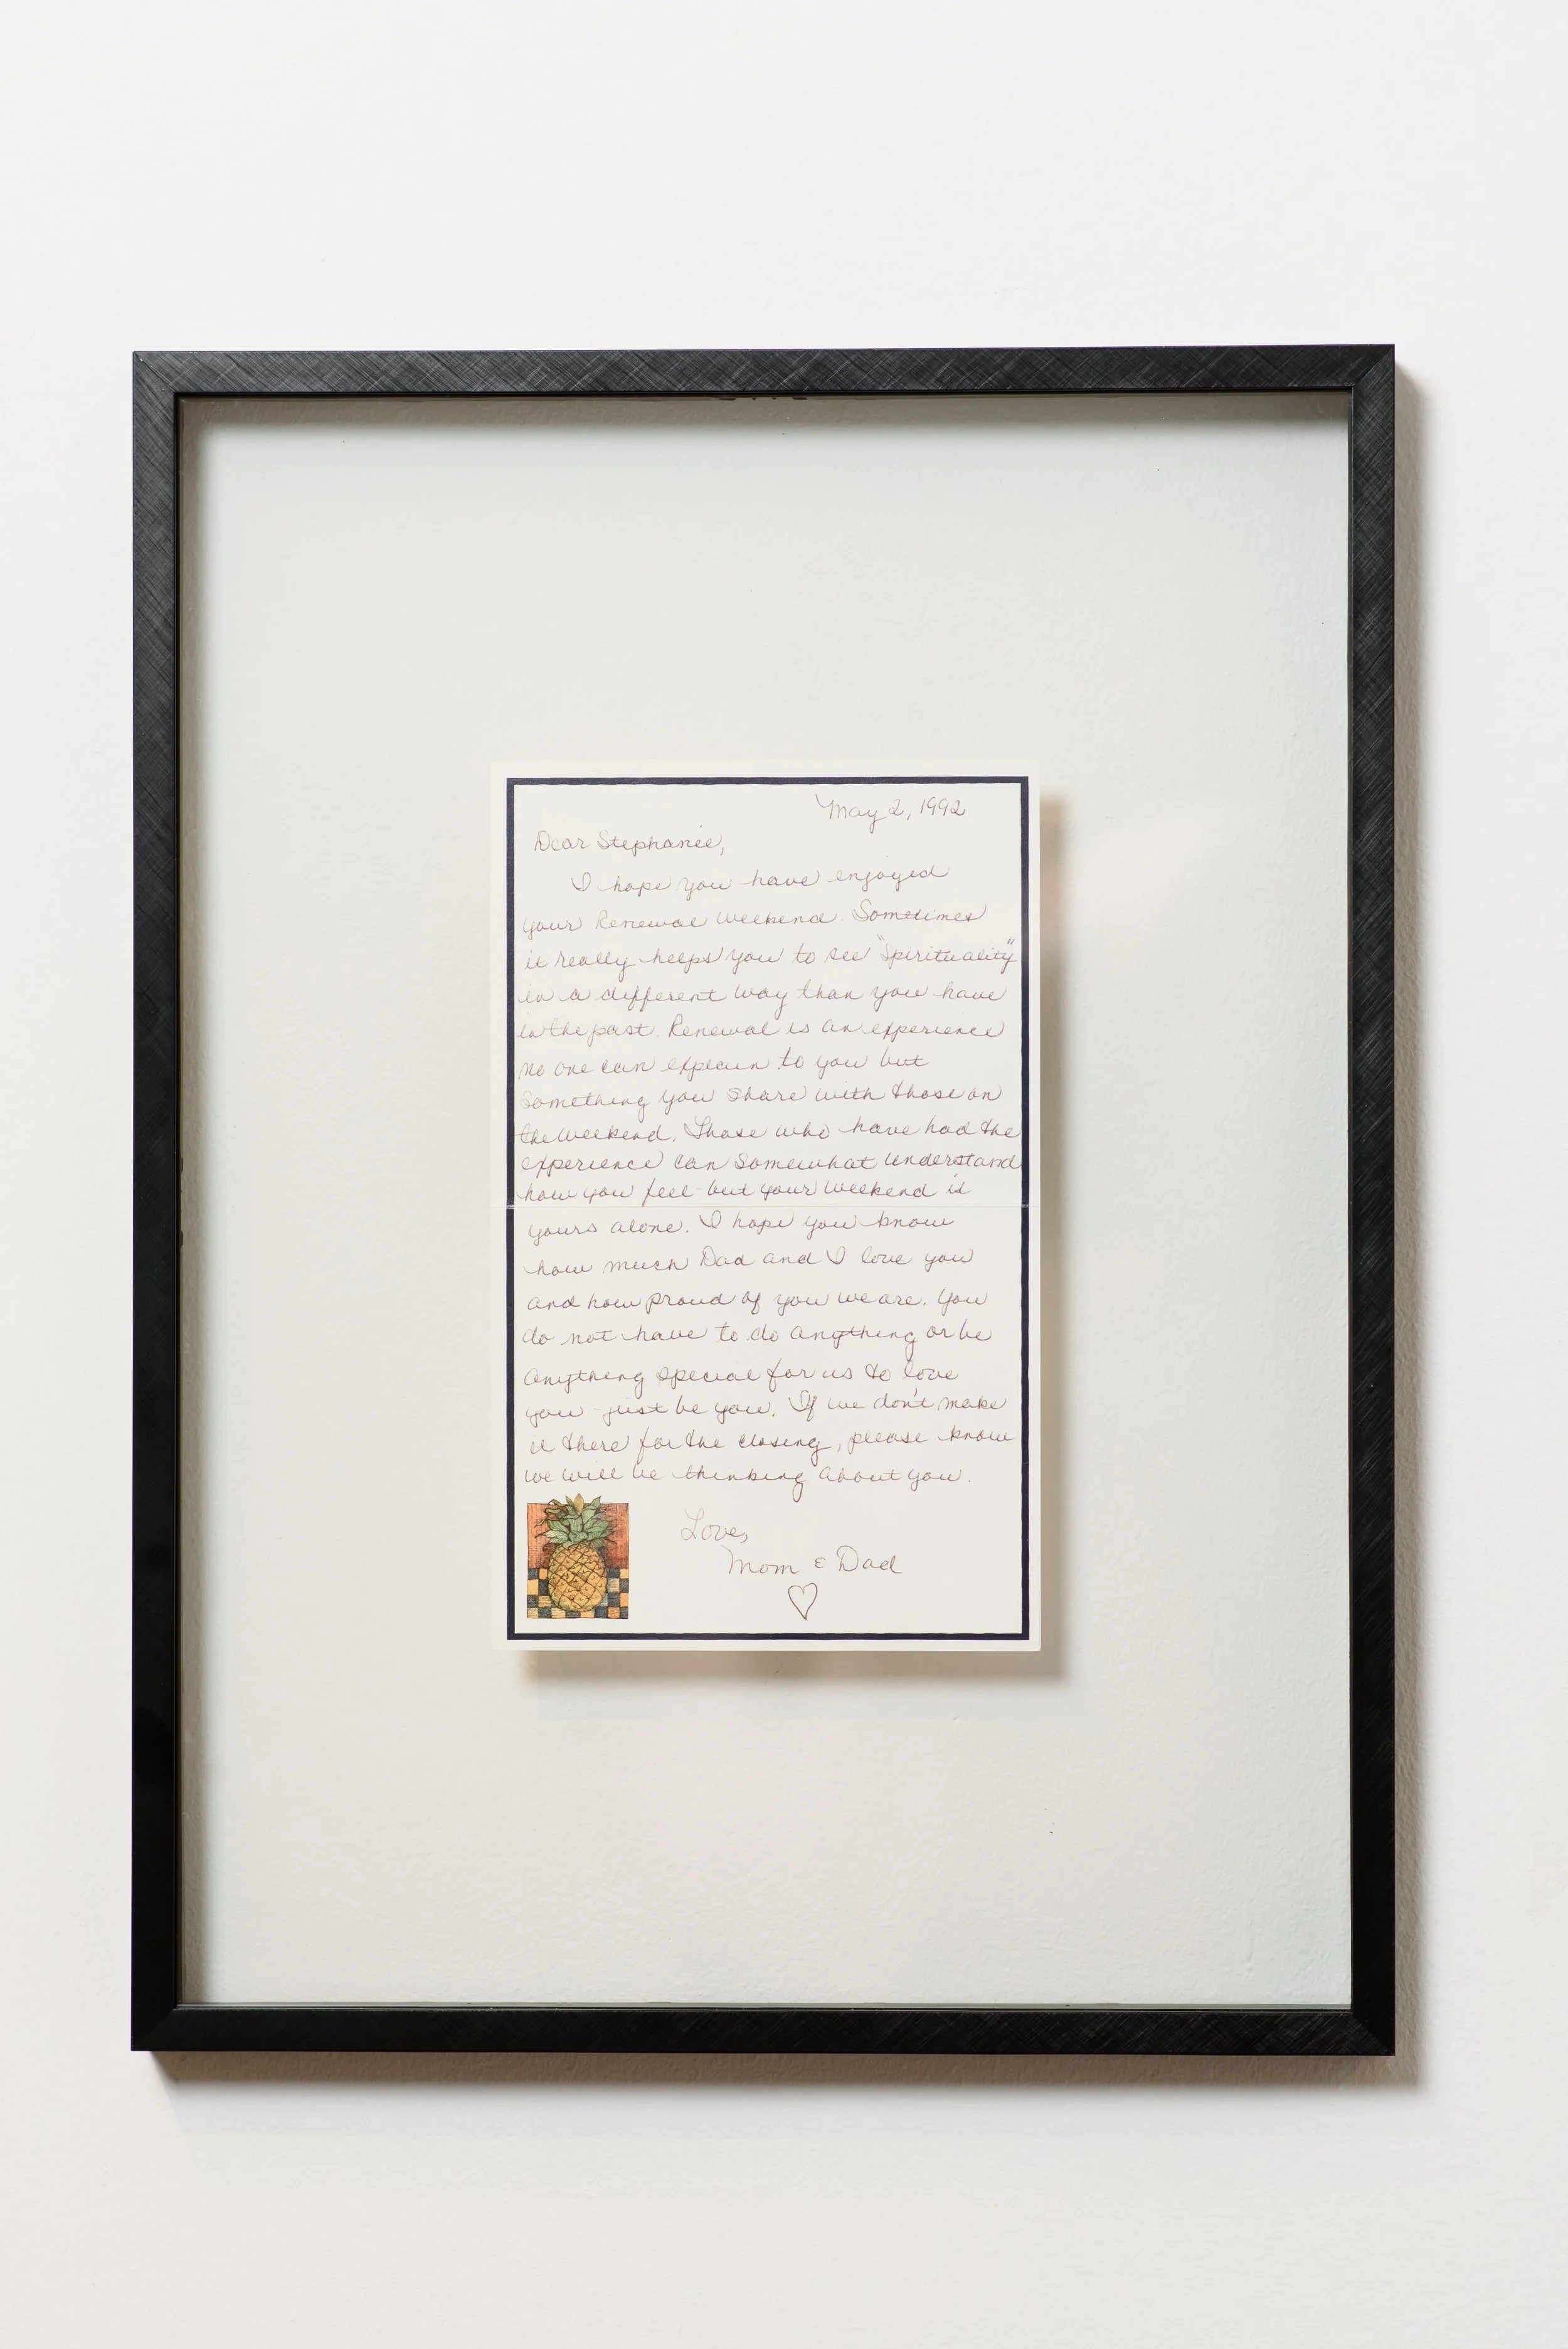 May 2, 1992
Dear Stephanie,
I hope you have enjoyed
your Renewal weekend. Sometimes
it really helps you to see "Spirituality"
in a different way than you have
in the past. Renewal is an experience
no one can explain to you but
something you share with those on
the weekend. Those who have had the
experience can somewhat understand
how you feel - but your weekend is
yours alone. I hope you know
how much Dad and I love you
and how proud of you we are. You
do not have to do anything or be
anything special for us to love
you - just be you. If we don't make
it there for the closing, please know
we will be thinking about you.
Love,
Mom & Dad